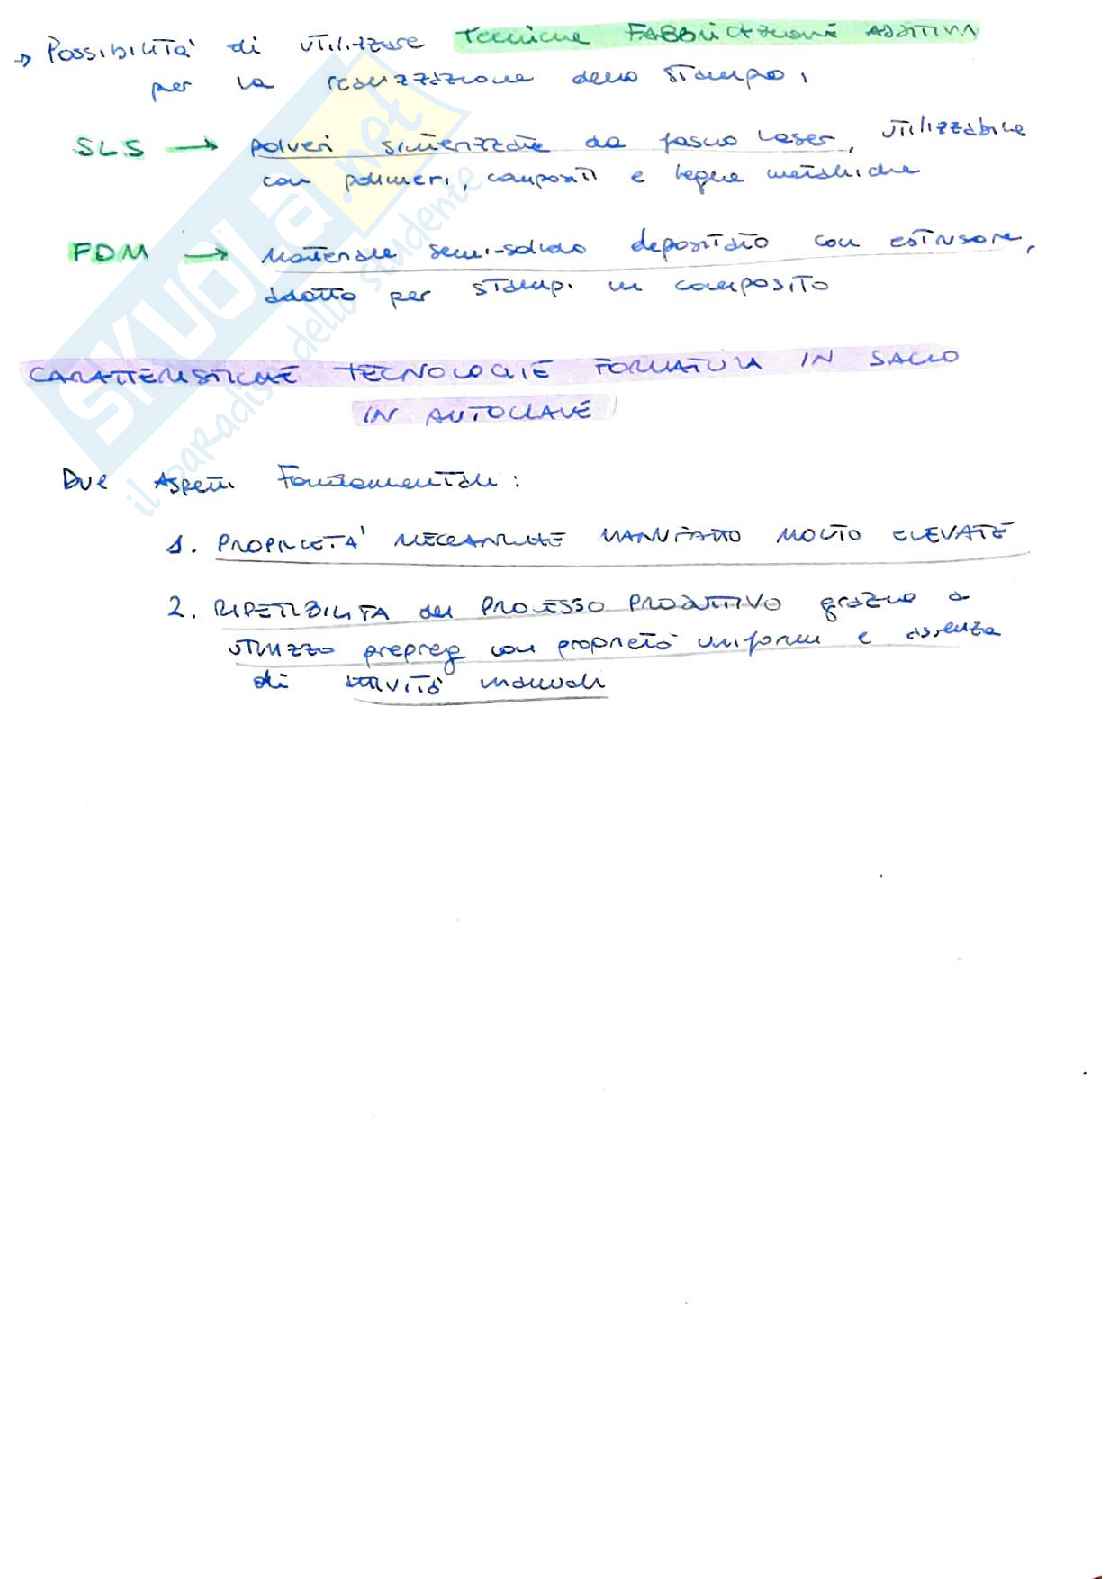 → Possibilità di utilizzare tecniche FABBRICAZIONE ADDITIVA
per la realizzazione dello stampo,
SLS → polveri sinterizzate da fascio laser, utilizzabile
con polimeri, compositi e leghe metalliche
FDM → materiale semi-solido depositato con estrusore,
adatto per stampi in composito
CARATTERISTICHE TECNOLOGIE FORMATURA IN SACCO
IN AUTOCLAVE
Due Aspetti Fondamentali:
1. PROPRIETA' MECCANICHE MANUFATTO MOLTO ELEVATE
2. RIPETIBILITA del PROCESSO PRODUTTIVO grazie a
utilizzo prepreg con proprietà uniformi e assenza
di attività manuali
SKUOLA.net
il paradiso dello studente